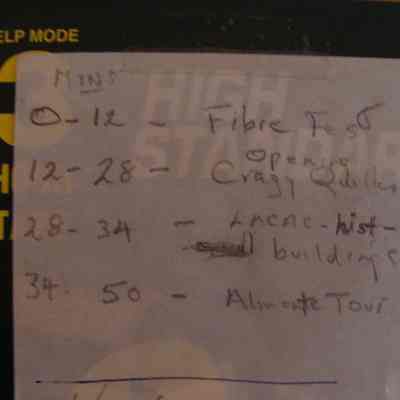 ELP MODE
MINS
HIGH
STANDAR
0-12 - Fibre Fest
Opening
12-28- Crazy Quilters
28-34 - LMCAC-hist-
building
34- 50 - Almonte Tour